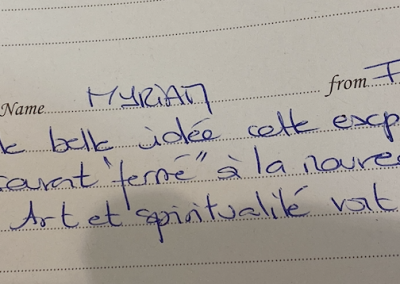 Name MYRIAM from F
belle idée cette exp
"fermé" à la
Art et spiritualité vont